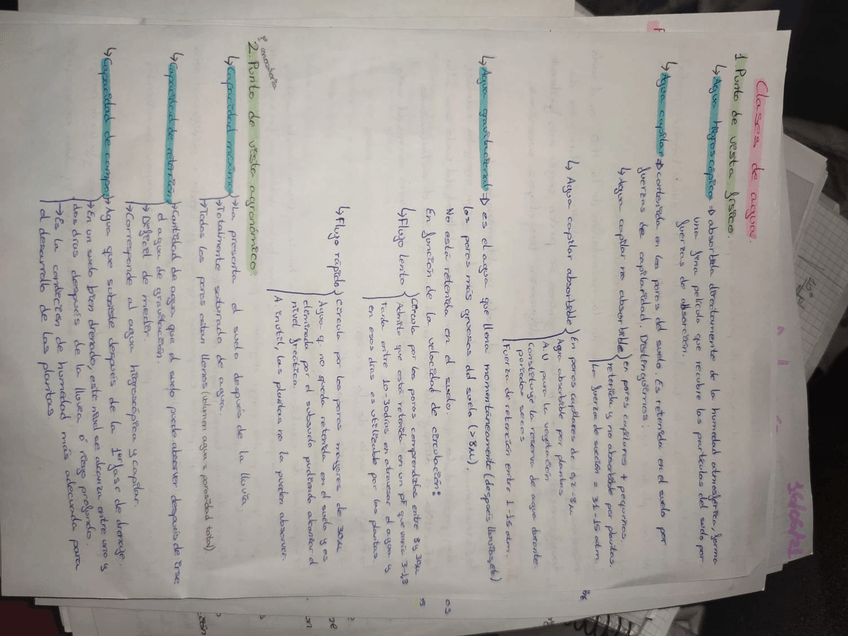 16/05/21
Clases de agua.
1 Punto de vista físico.
↳ Agua higroscópica → absorbida directamente de la humedad atmosférica, forma
una fina película que recubre las partículas del suelo por
fuerzas de adsorción.
↳ Agua capilar → contenida en los poros del suelo. Es retenida en el suelo por
fuerzas de capilaridad. Distinguiremos:
↳ Agua capilar no absorbible) en poros capilares + pequeños,
retenida y no absorbible por plantas.
La fuerza de succión a 31-15 atm.
↳ Agua capilar absorbible) En poros capilares de 0,2-8μ
Agua absorbible por plantas.
A.U para la vegetación
Constituye la reserva de agua durante
periodos secos
Fuerza de retención entre 1-15 atm.
↳ Agua gravitacional → es el agua que llena momentáneamente (después lluvias, etc)
los poros más gruesos del suelo (>8μ).
No está retenida en el suelo.
En función de la velocidad de circulación:
↳ Flujo lento) Circula por los poros comprendidos entre 8 y 30μ
que está retenida en un pF que varía
Tarda entre 10-30 días en atravesar el agua y
en esos días es utilizable por las plantas
↳ Flujo rápido) Circula por los poros mayores de 30μ
Agua q no queda retenida en el suelo y es
eliminada por el subsuelo pudiendo alcanzar el
nivel freático.
A inútil las plantas no la pueden absorver.
2. Punto de vista agronómico
↳ Capacidad máxima → La presenta el suelo después de la lluvia
→ Totalmente saturado de agua.
→ Todos los poros están llenos (volumen agua = porosidad total)
↳ Capacidad de retención → Cantidad de agua que el suelo puede absorver después de irse
el agua de gravitación.
→ Difícil de medir
→ Corresponde al agua higroscópica y capilar.
↳ Capacidad de campo → Agua que subsiste después de la 1ª fase de drenaje
→ En un suelo bien drenado, este nivel se alcanza entre uno y
dos días después de la lluvia ó riego profundo.
→ Es la condición de humedad más adecuada para
el desarrollo de las plantas.